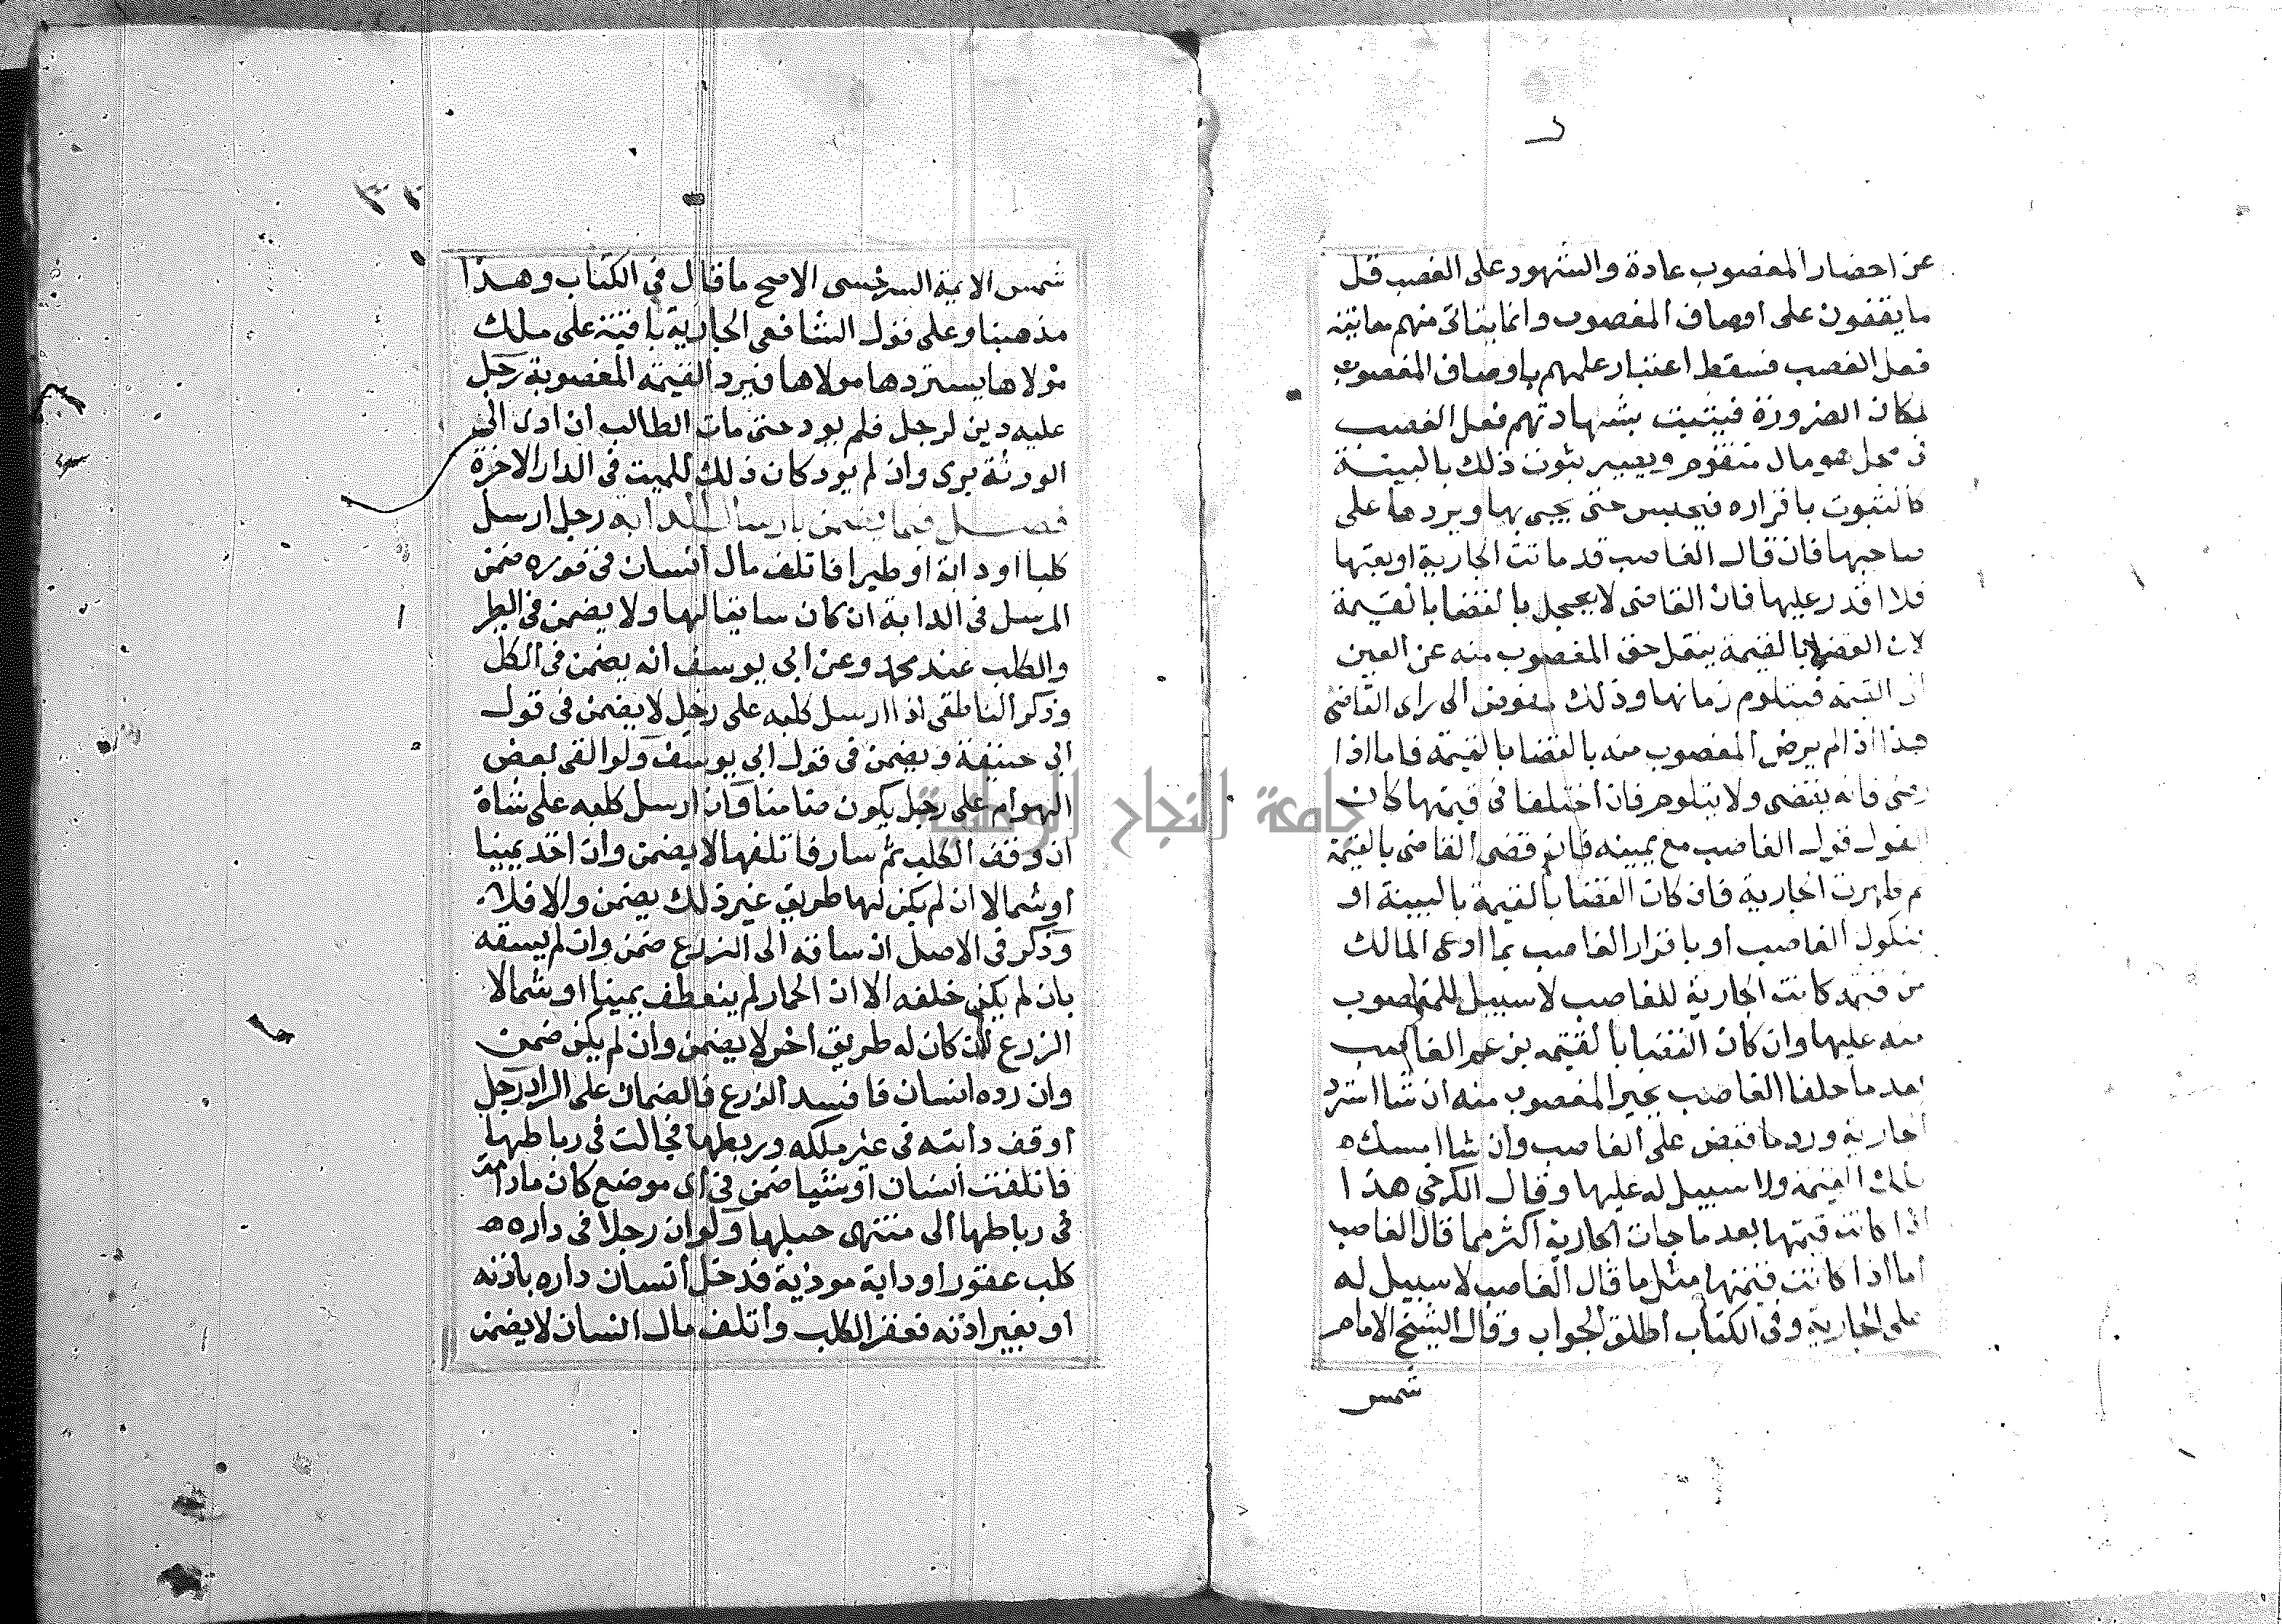 عن احضار المغصوب عادة والشهود على الغصب قل
ما يقفون على اوصاف المغصوب وانما يتاتى منهم معاينة
فعل الغصب فسقط اعتبار علمهم باوصاف المغصوب
لمكان الضرورة فيثبت بشهادتهم فعل الغصب
في محل هو مال متقوم ويصير ثبوت ذلك بالبينة
كالثبوت باقراره فيحبس حتى يجى بها ويردها على
صاحبها فان قال الغاصب قد ماتت الجارية او بعتها
فلا اقدر عليها فان القاضى لا يعجل بالقضا بالقيمة
لان القضا بالقيمة ينقل حق المغصوب منه عن العين
الى القيمة فيتلوم زمانها وذلك مفوض الى راى القاضى
هذا اذا لم يرض المغصوب منه بالقضا بالقيمة فاما اذا
رضى فانه يقضى ولا يتلوم فان اختلفا فى قيمتها كان
القول قول الغاصب مع يمينه فان قضى القاضى بالقيمة
ثم ظهرت الجارية فان كان القضا بالقيمة بالبينة او
بنكول الغاصب او باقرار الغاصب بما ادعى المالك
من قيمته كانت الجارية للغاصب لا سبيل للمغصوب
منه عليها وان كان القضا بالقيمة بزعم الغاصب
بعد ما حلفا الغاصب يخير المغصوب منه ان شا استرد
الجارية ورد ما قبض على الغاصب وان شا امسك
تلك القيمة ولا سبيل له عليها وقال الكرخي هذا
اذا كانت قيمتها بعد ما جات الجارية اكثر مما قال الغاصب
اما اذا كانت قيمتها مثل ما قال الغاصب لا سبيل له
على الجارية وفى الكتاب اطلق الجواب وقال الشيخ الامام
شمس
شمس الايمة السرخسى الاصح ما قال في الكتاب وهذا
مذهبنا وعلى قول الشافعى الجارية باقية على ملك
مولاها يستردها مولاها فيرد القيمة المغصوبة رجل
عليه دين لرجل فلم يود حتى مات الطالب ان ادى الى
الورثة برى وان لم يود كان ذلك للميت فى الدار الاخرة
فصل فيما يضمن بارسال الدابة رجل ارسل
كلبا او دابة او طيرا فاتلف مال انسان فى فوره ضمن
المرسل فى الدابة ان كان سايقا لها ولا يضمن فى الطير
والكلب عند محمد وعن ابى يوسف انه يضمن فى الكل
وذكر الناطقى اذا ارسل كلبه على رجل لا يضمن فى قول
ابى حنيفة ويضمن فى قول ابى يوسف ولو القى بعض
الهوام على رجل يكون ضامنا وان ارسل كلبه على شاة
ان وقف الكلب ثم سار فاتلفها لا يضمن وان اخذ يمينا
او شمالا ان لم يكن لها طريق غير ذلك يضمن والا فلا
وذكر فى الاصل ان ساقه الى الزرع ضمن وان لم يسقه
بان لم يكن خلفه الا ان الحمار لم ينعطف يمينا او شمالا
الزرع ان كان له طريق اخر لا يضمن وان لم يكن ضمن
وان رده انسان فافسد الزرع فالضمان على الراد رجل
اوقف دابته فى غير ملكه وربطها فجالت فى رباطها
فاتلفت انسان او شيا ضمن فى اى موضع كان مادامت
فى رباطها الى منتهى حبلها ولو ان رجلا فى داره
كلب عقور او دابة موذية فدخل انسان داره باذنه
او بغير اذنه فعقر الكلب واتلف مال انسان لا يضمن
جامعة النجاح الوطنية